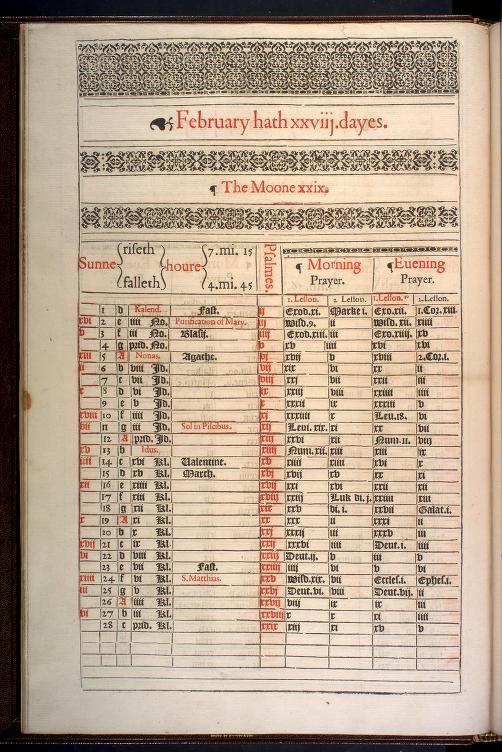 February hath xxviij.dayes.
¶ The Moone xxix.
Sunne riseth falleth houre 7. mi. 15 4. mi. 45
Psalmes.
¶ Morning Prayer.
¶ Euening Prayer.
1. Lesson. 2. Lesson. 1. Lesson. 2. Lesson.
1 d Kalend. Fast. ij Exod.xi. Marke i. Exo.xii. 1.Cor.xiii
xvi 2 e iiii No. Purification of Mary. iij Wisd.9. ii Wisd. xii. xiiii
3 f iii No. Blasij. iiij Exod.xiii. iii Exo.xiiij. xv
4 g prid. No. v xv iiii xvi xvi
xiii 5 A Nonas. Agathe. vi xvii v xviii 2.Cor.i.
ii 6 b viii Id. vij xix vi xx ii
7 c vii Id. xxi vii xxii iii
8 d vi Id. xxiii viii xxiiii iiii
9 e v Id. x xxxii ix xxxiii v
xviii 10 f iiii Id. xxxiiii x Leu.18. vi
vii 11 g iii Id. Sol in Piscibus. Leui. xix. xi xx vii
12 A prid. Id. xxvi xii Num.11. viij
xv 13 b Idus. Num.xii. xiii ix
iiii 14 c xvi Kl. Valentine. xv xvi x
15 d xv Kl. March. xvij xv xx xi
xii 16 e xiiii Kl. xvij xxi xvi xxv xii
17 f xiii Kl. xviij Luk di. j. xiii
18 g xii Kl. xix di. i. Galat.i.
x 19 A xi Kl. xx xxx ii xxxi ii
20 b x Kl. xxj iii iii
xvii 21 c ix Kl. xxij xxxvi iiii Deut.i. iiii
vi 22 d viii Kl. xxiij Deut.ij. v iii v
23 e vii Kl. Fast. iiii vi v vi
xiiii 24 f vi Kl. S. Matthias. xxv Wisd.xix. vii Eccles.i. Ephes.i.
iii 25 g v Kl. xxvj Deut. vi. viii Deut.vij. ii
26 A iiii Kl. xxvij viii ix ix iii
27 b iii Kl. xxviij x x xi iiii
28 c prid. Kl. xxix xiij xi xv v